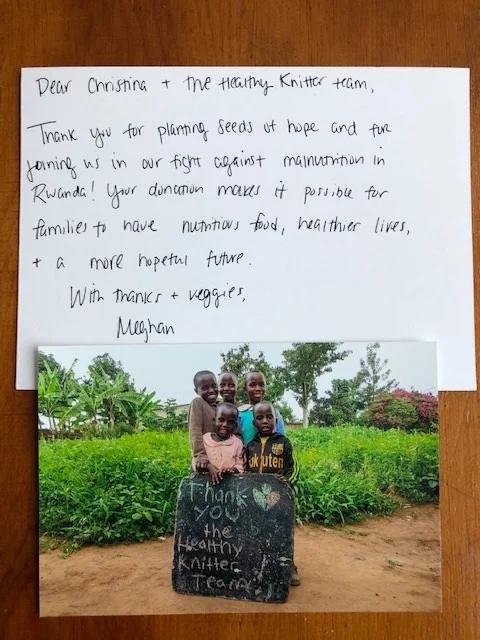 Dear Christina + the Healthy Knitter team,
Thank you for planting seeds of hope and for
joining us in our fight against malnutrition in
Rwanda! Your donation makes it possible for
families to have nutritious food, healthier lives,
+ a more hopeful future.
With thanks + veggies,
Meghan
kuten
Thank
you
the
Healthy
Knitter
Team!